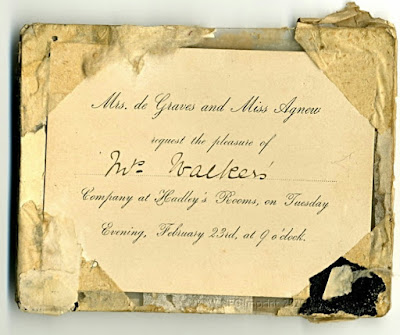 Mrs. de Graves and Miss Agnew
request the pleasure of
Mrs Walkers'
Company at Hadley's Rooms, on Tuesday
Evening, February 23rd, at 9 o'clock.